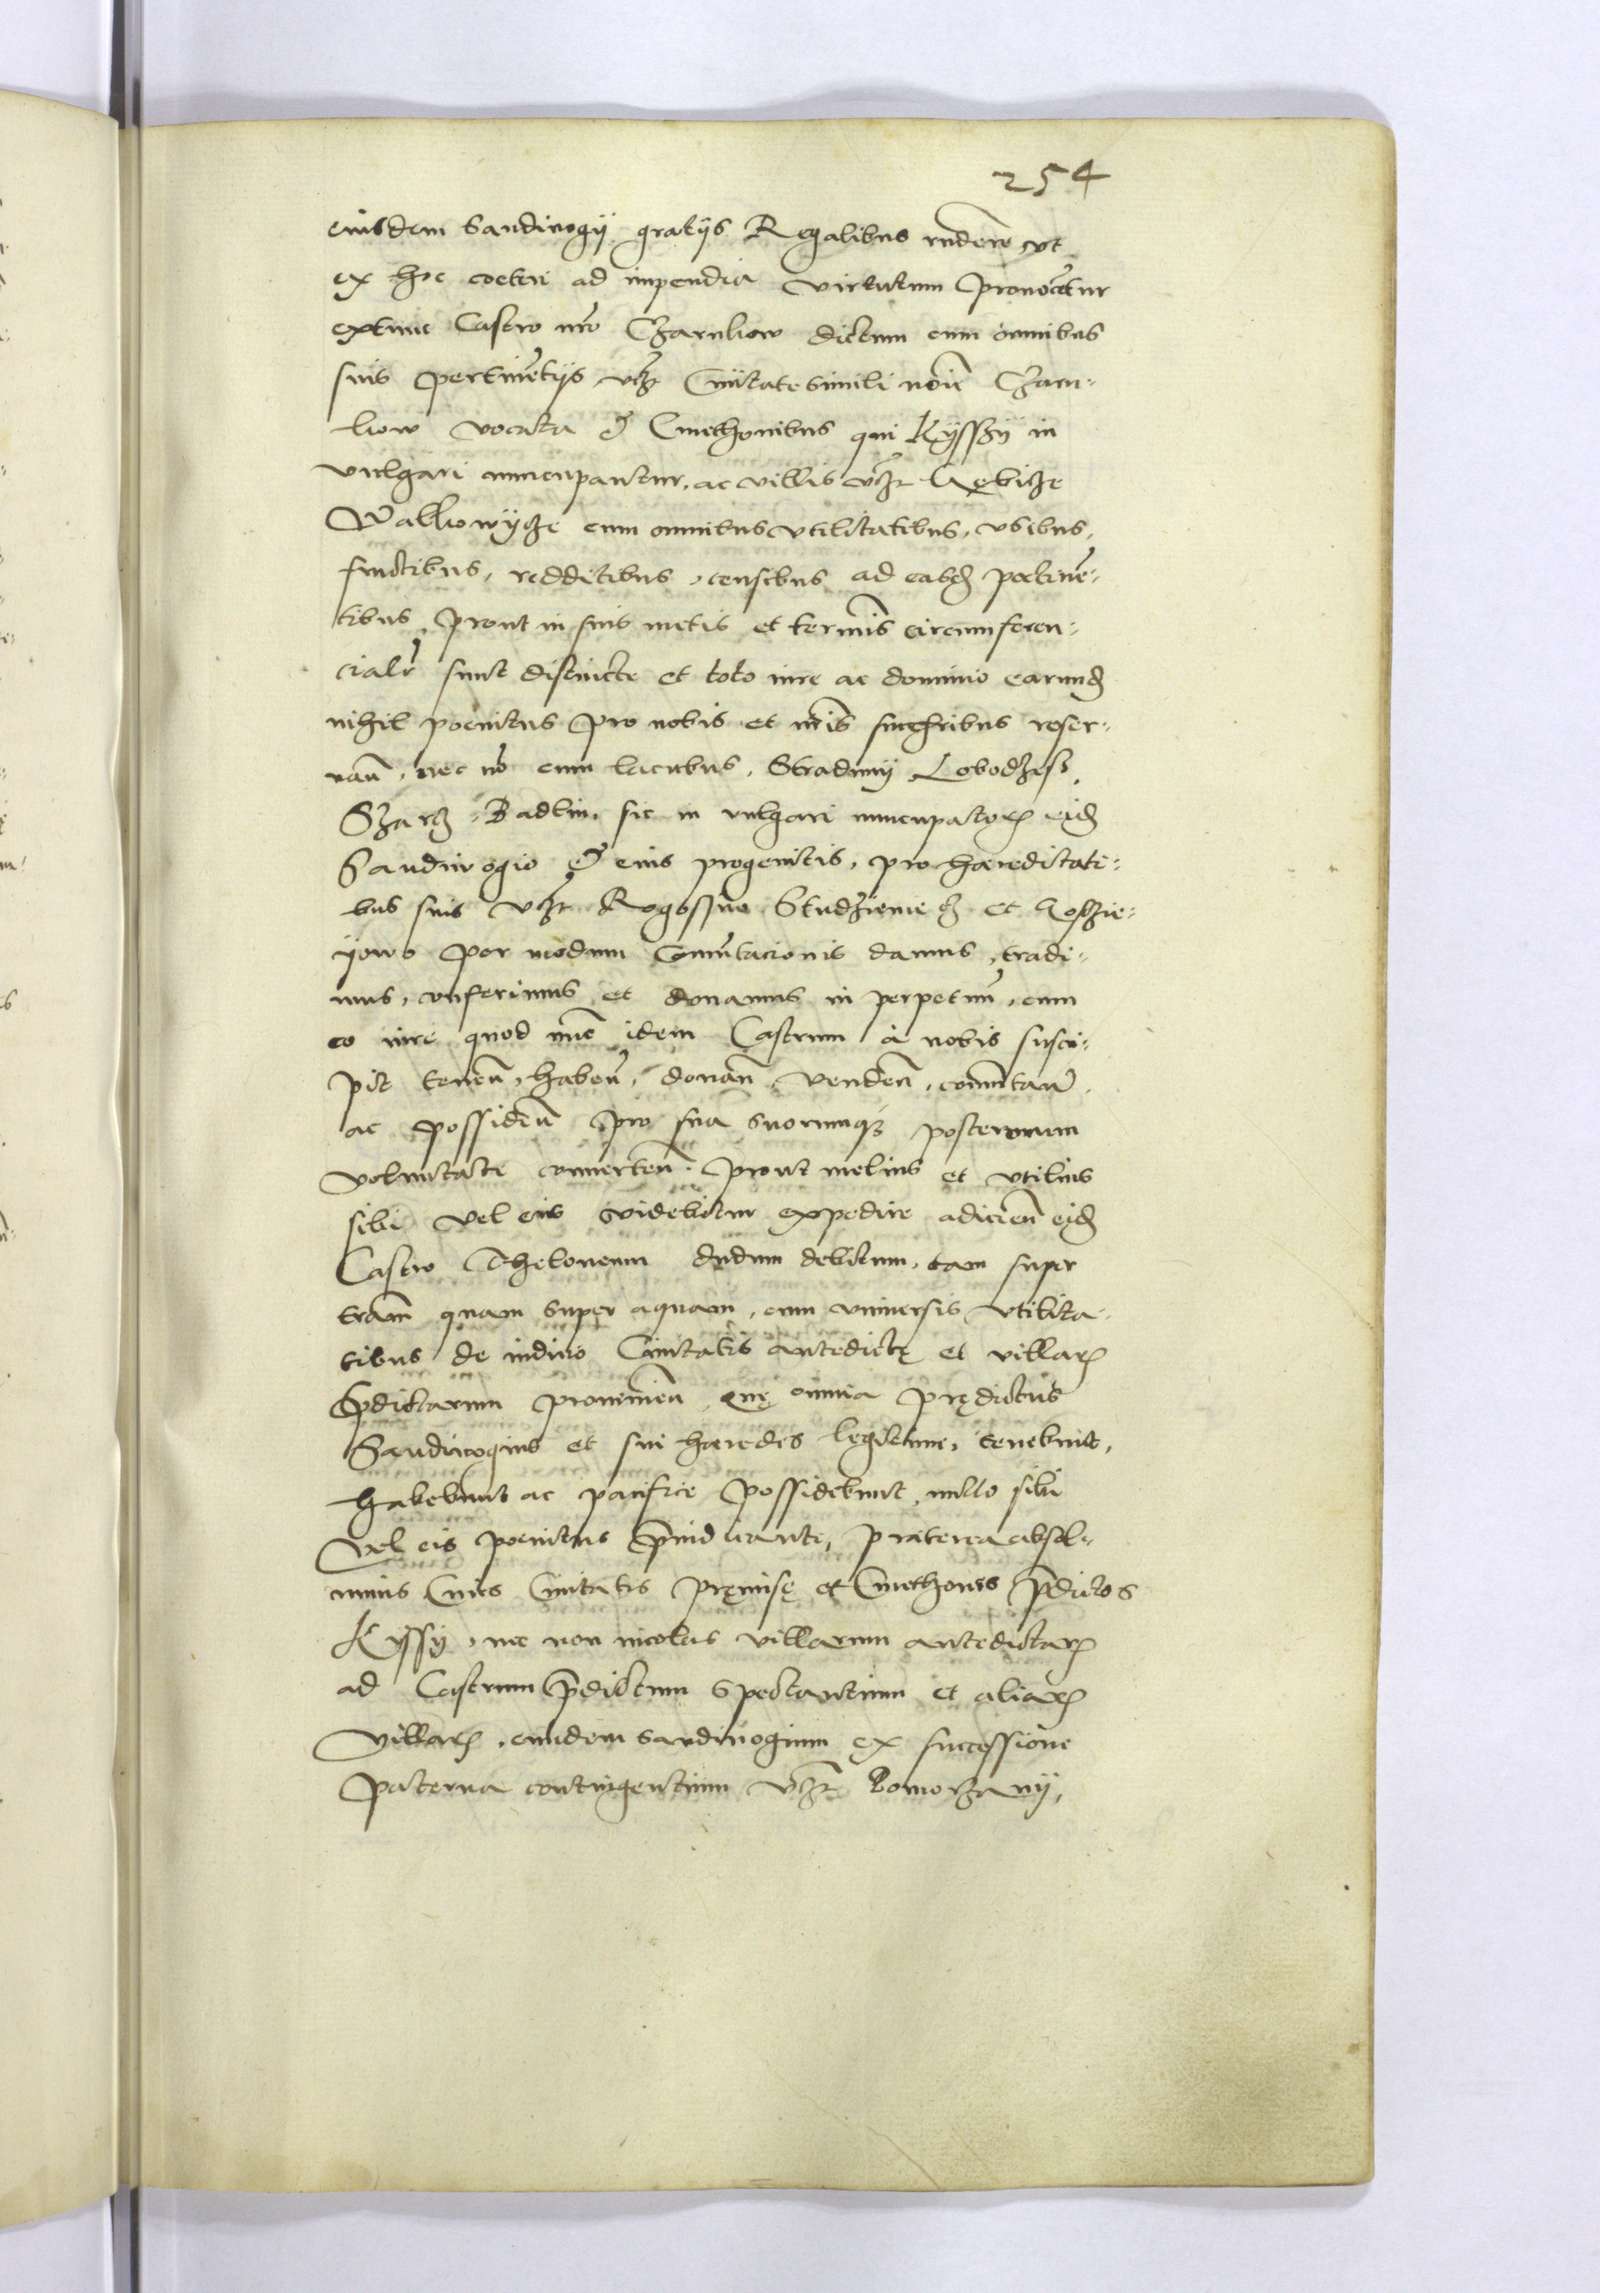 254
eiusdem Sandivogÿ gratÿs Regalibus rndere, vt
ex hoc coeteri ad impendia virtutum prouocētur
extunc Castro nr̄o Czarnkow dictum cum omnibus
suis pertinētÿs vcz Ciuitate simili noīe Czarn-
kow vocata & Cmethonibus qui Kÿsszÿ in
vulgari nuncupantur, ac villis vcz Gębicze
Walkowÿcze cum omnibus vtilitatibus, vsibus,
fructibus, redditibus, censibus ad easd pertinē-
tibus, prout in suis metis et terminis circumferen-
cialr sunt distincte et toto iure ac dominio earund
nihil poenitus pro nobis et nr̄is succribus reser-
uañ, nec nō cum lacubus, Stradunÿ Lobodzesz,
Szarcz Badlin, sic in vulgari nuncupator eid
Sandiuogio & eius progenitis, pro haereditati-
bus suis vcz Rogoszno Studzienie cz et Gosczie-
ÿowo per modum Comutacionis damus, tradi-
mus, conferimus et donamus in perpetuū, cum
eo iure quod nūc idem Castrum à nobis susci-
pit teneñ, habeñ, donañ, vendeñ, comutañ,
ac possideñ pro sua suorumq posterorum
voluntate conuerteñ prout melius et vtilius
sibi vel eis videbitur expedire adicieñ eid
Castro Theloneum dudum debitum, tam super
trām quam super aquam, cum vniuersis vtilita-
tibus de indiuo Ciuitatis antedictę et villar
p̄dictarum proueñieñ, quę omnia prędictus
Sandiuogius et sui haeredes legitime, tenebunt,
habebunt ac pacifice possidebunt, nullo sibi
vel eis poenitus p̄iudicante, praeterea absol-
uimus Ciues Ciuitatis pręmisę et Cmethones p̄dictos
Kÿssÿ, nec non incolas villarum antedictar
ad Castrum p̄dictum spectantium et aliar
villar, eundem Sandiuogium ex successione
paterna contingentium vcz Komorzanÿ,